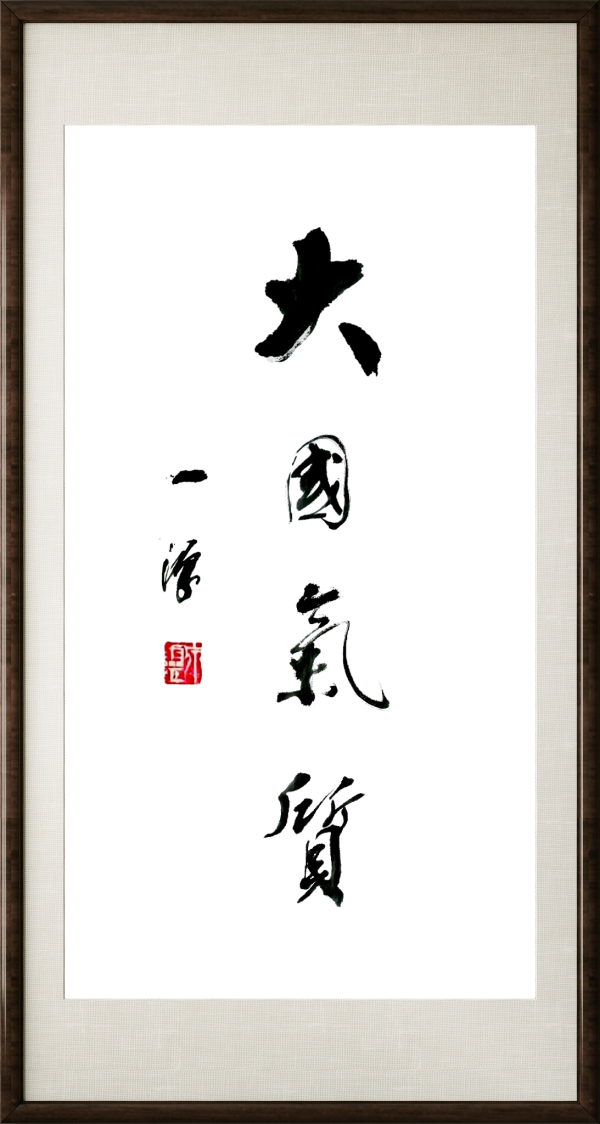 大國氣質
一